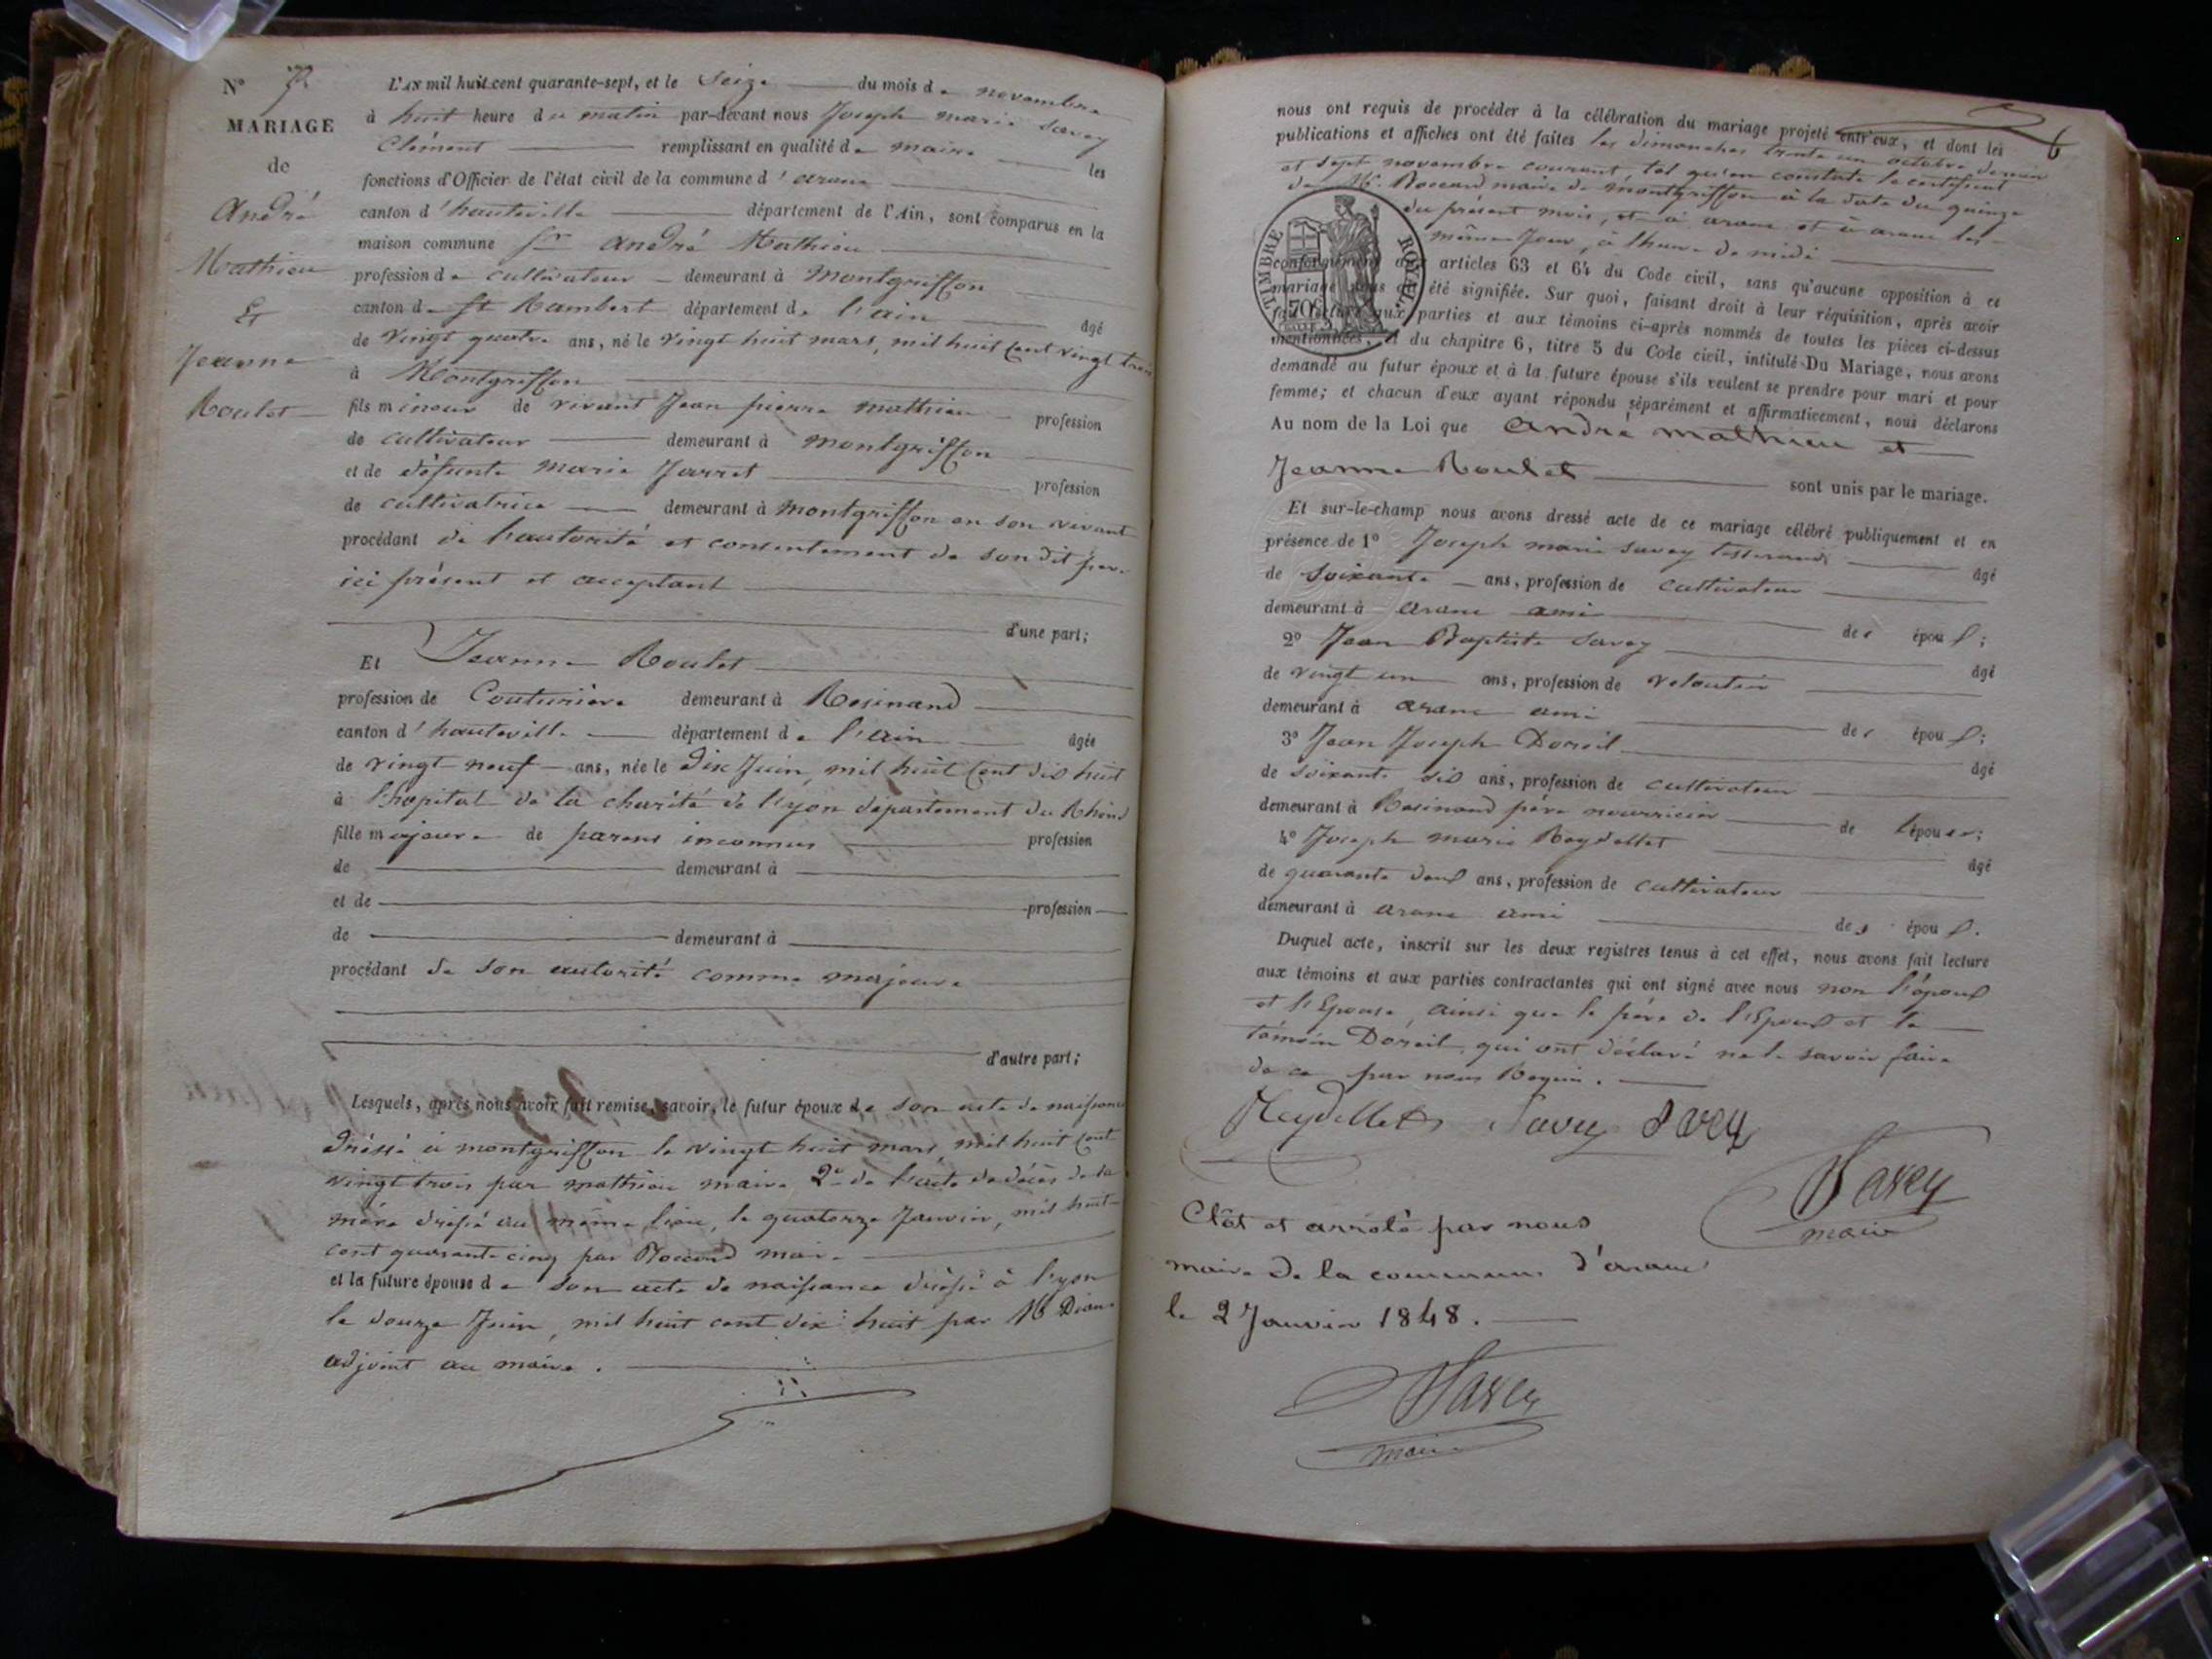 N° 7
MARIAGE
de
André
Mathieu
Et
Jeanne
Roulet
L'AN mil huit cent quarante-sept, et le Seize du mois de novembre
à huit heure du matin par-devant nous Joseph marie Savey
Clément remplissant en qualité de maire les
fonctions d'Officier de l'état civil de la commune d'aranc
canton d'hauteville département de l'Ain, sont comparus en la
maison commune Sr André Mathieu
profession de cultivateur demeurant à Montgriffon
canton de St Rambert département de l'ain âgé
de vingt quatre ans, né le vingt huit mars, mil huit cent vingt trois
à Montgriffon
fils mineur de vivant Jean pierre mathieu profession
de cultivateur demeurant à montgriffon
et de défunte marie Jarret profession
de cultivatrice demeurant à montgriffon en son vivant
procédant de l'autorité et consentement de son dit père
ici présent et acceptant
d'une part;
Et Jeanne Roulet
profession de Couturière demeurant à Resinand
canton d'hauteville département de l'ain âgée
de vingt neuf ans, née le dix Juin, mil huit cent dix huit
à l'hopital de la charité de Lyon département du Rhône
fille majeure de parens inconnus profession
de demeurant à
et de profession
de demeurant à
procédant de son autorité comme majeure
d'autre part;
Lesquels, après nous avoir fait remise, savoir, le futur époux de son acte de naissance
dréssé à montgriffon le vingt huit mars, mil huit cent
vingt trois par mathieu maire 2° de l'acte de décès de sa
mère dressé au même lieu, le quatorze Janvier, mil huit
cent quarante cinq par Roccard maire
et la future épouse de son acte de naissance dressé à Lyon
le douze Juin, mil huit cent dix huit par Mr
adjoint au maire.
nous ont requis de procéder à la célébration du mariage projeté entr'eux, et dont les
publications et affiches ont été faites les dimanches trente un octobre dernier
et sept novembre courant, tel qu'on constate le certificat
de Mr. Roccard maire de montgriffon à la date du quinze
du présent mois, et à aranc et à aranc les
même Jour, à l'heure de midi
TIMBRE ROYAL
70c
conformément aux articles 63 et 64 du Code civil, sans qu'aucune opposition à ce
mariage nous ait été signifiée. Sur quoi, faisant droit à leur réquisition, après avoir
fait lecture aux parties et aux témoins ci-après nommés de toutes les pièces ci-dessus
mentionnées, et du chapitre 6, titre 5 du Code civil, intitulé Du Mariage, nous avons
demandé au futur époux et à la future épouse s'ils veulent se prendre pour mari et pour
femme; et chacun d'eux ayant répondu séparément et affirmativement, nous déclarons
Au nom de la Loi que André mathieu et
Jeanne Roulet sont unis par le mariage.
Et sur-le-champ nous avons dressé acte de ce mariage célébré publiquement et en
présence de 1° Joseph marie Savey tisserand âgé
de soixante ans, profession de cultivateur
demeurant à aranc ami des époux;
2° Jean Baptiste Savey âgé
de vingt un ans, profession de
demeurant à aranc ami des époux;
3° Jean Joseph Doreil âgé
de soixante dix ans, profession de cultivateur
demeurant à Resinand père nourricier de l'épouse;
4° Joseph marie Reydellet âgé
de quarante deux ans, profession de cultivateur
demeurant à aranc ami des époux.
Duquel acte, inscrit sur les deux registres tenus à cet effet, nous avons fait lecture
aux témoins et aux parties contractantes qui ont signé avec nous non l'époux
et l'Epouse, ainsi que le père de l'Epoux et le
témoin Doreil, qui ont déclaré ne le savoir faire
de ce par nous Requis.
Reydellet Savey Savey
Savey
maire
Clôt et arrété par nous
maire de la commune d'aranc
le 2 Janvier 1848.
Savey
maire